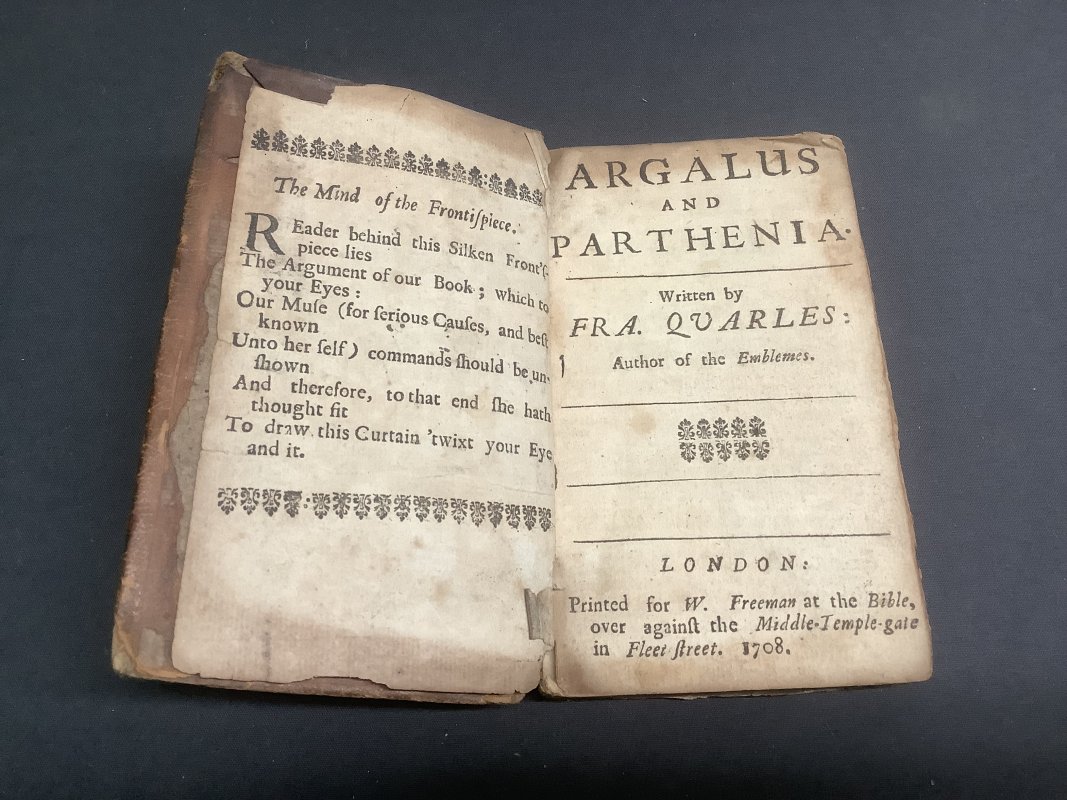 The Mind of the Frontiſpiece.
REader behind this Silken Front'ſ-
piece lies
The Argument of our Book; which to
your Eyes:
Our Muſe (for ſerious Cauſes, and beſt
known
Unto her ſelf) commands ſhould be un-
ſhown
And therefore, to that end ſhe hath
thought fit
To draw this Curtain 'twixt your Eye
and it.
ARGALUS
AND
PARTHENIA.
Written by
FRA. QVARLES:
Author of the Emblemes.
LONDON:
Printed for W. Freeman at the Bible,
over againſt the Middle-Temple-gate
in Fleet ſtreet. 1708.